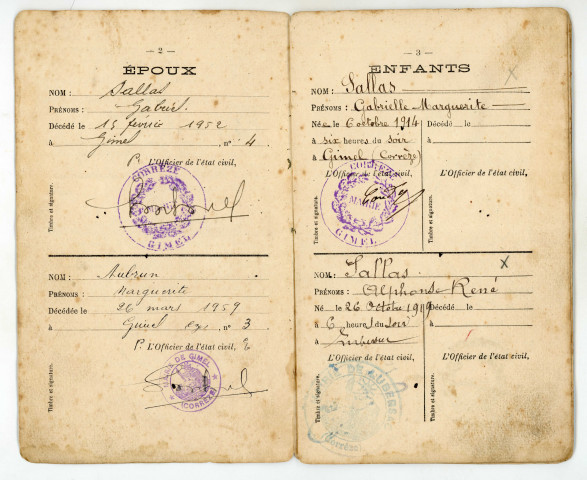 — 2 —
ÉPOUX
NOM : Sallas
PRÉNOMS : Gabriel
Décédé le 15 février 1952
à Gimel n° 4
P. L'Officier de l'état civil,
CORRÈZE
GIMEL
Timbre et signature.
NOM : Aubrun
PRÉNOMS : Marguerite
Décédée le 26 mars 1959
à Gimel n° 3
P. L'Officier de l'état civil,
MAIRIE DE GIMEL
(CORRÈZE)
Timbre et signature.
— 3 —
ENFANTS
NOM : Sallas
PRÉNOMS : Gabrielle Marguerite
Née le 6 octobre 1914
à six heures du soir
à Gimel (Corrèze)
Décédé le
à
L'Officier de l'état civil,
L'Officier de l'état civil,
CORRÈZE
MAIRIE
GIMEL
Timbre et signature.
Timbre et signature.
NOM : Sallas
PRÉNOMS : Alphonse René
Né le 26 Octobre 1919
à 6 heures du soir
à
Décédé le
à
L'Officier de l'état civil,
L'Officier de l'état civil,
Timbre et signature.
Timbre et signature.